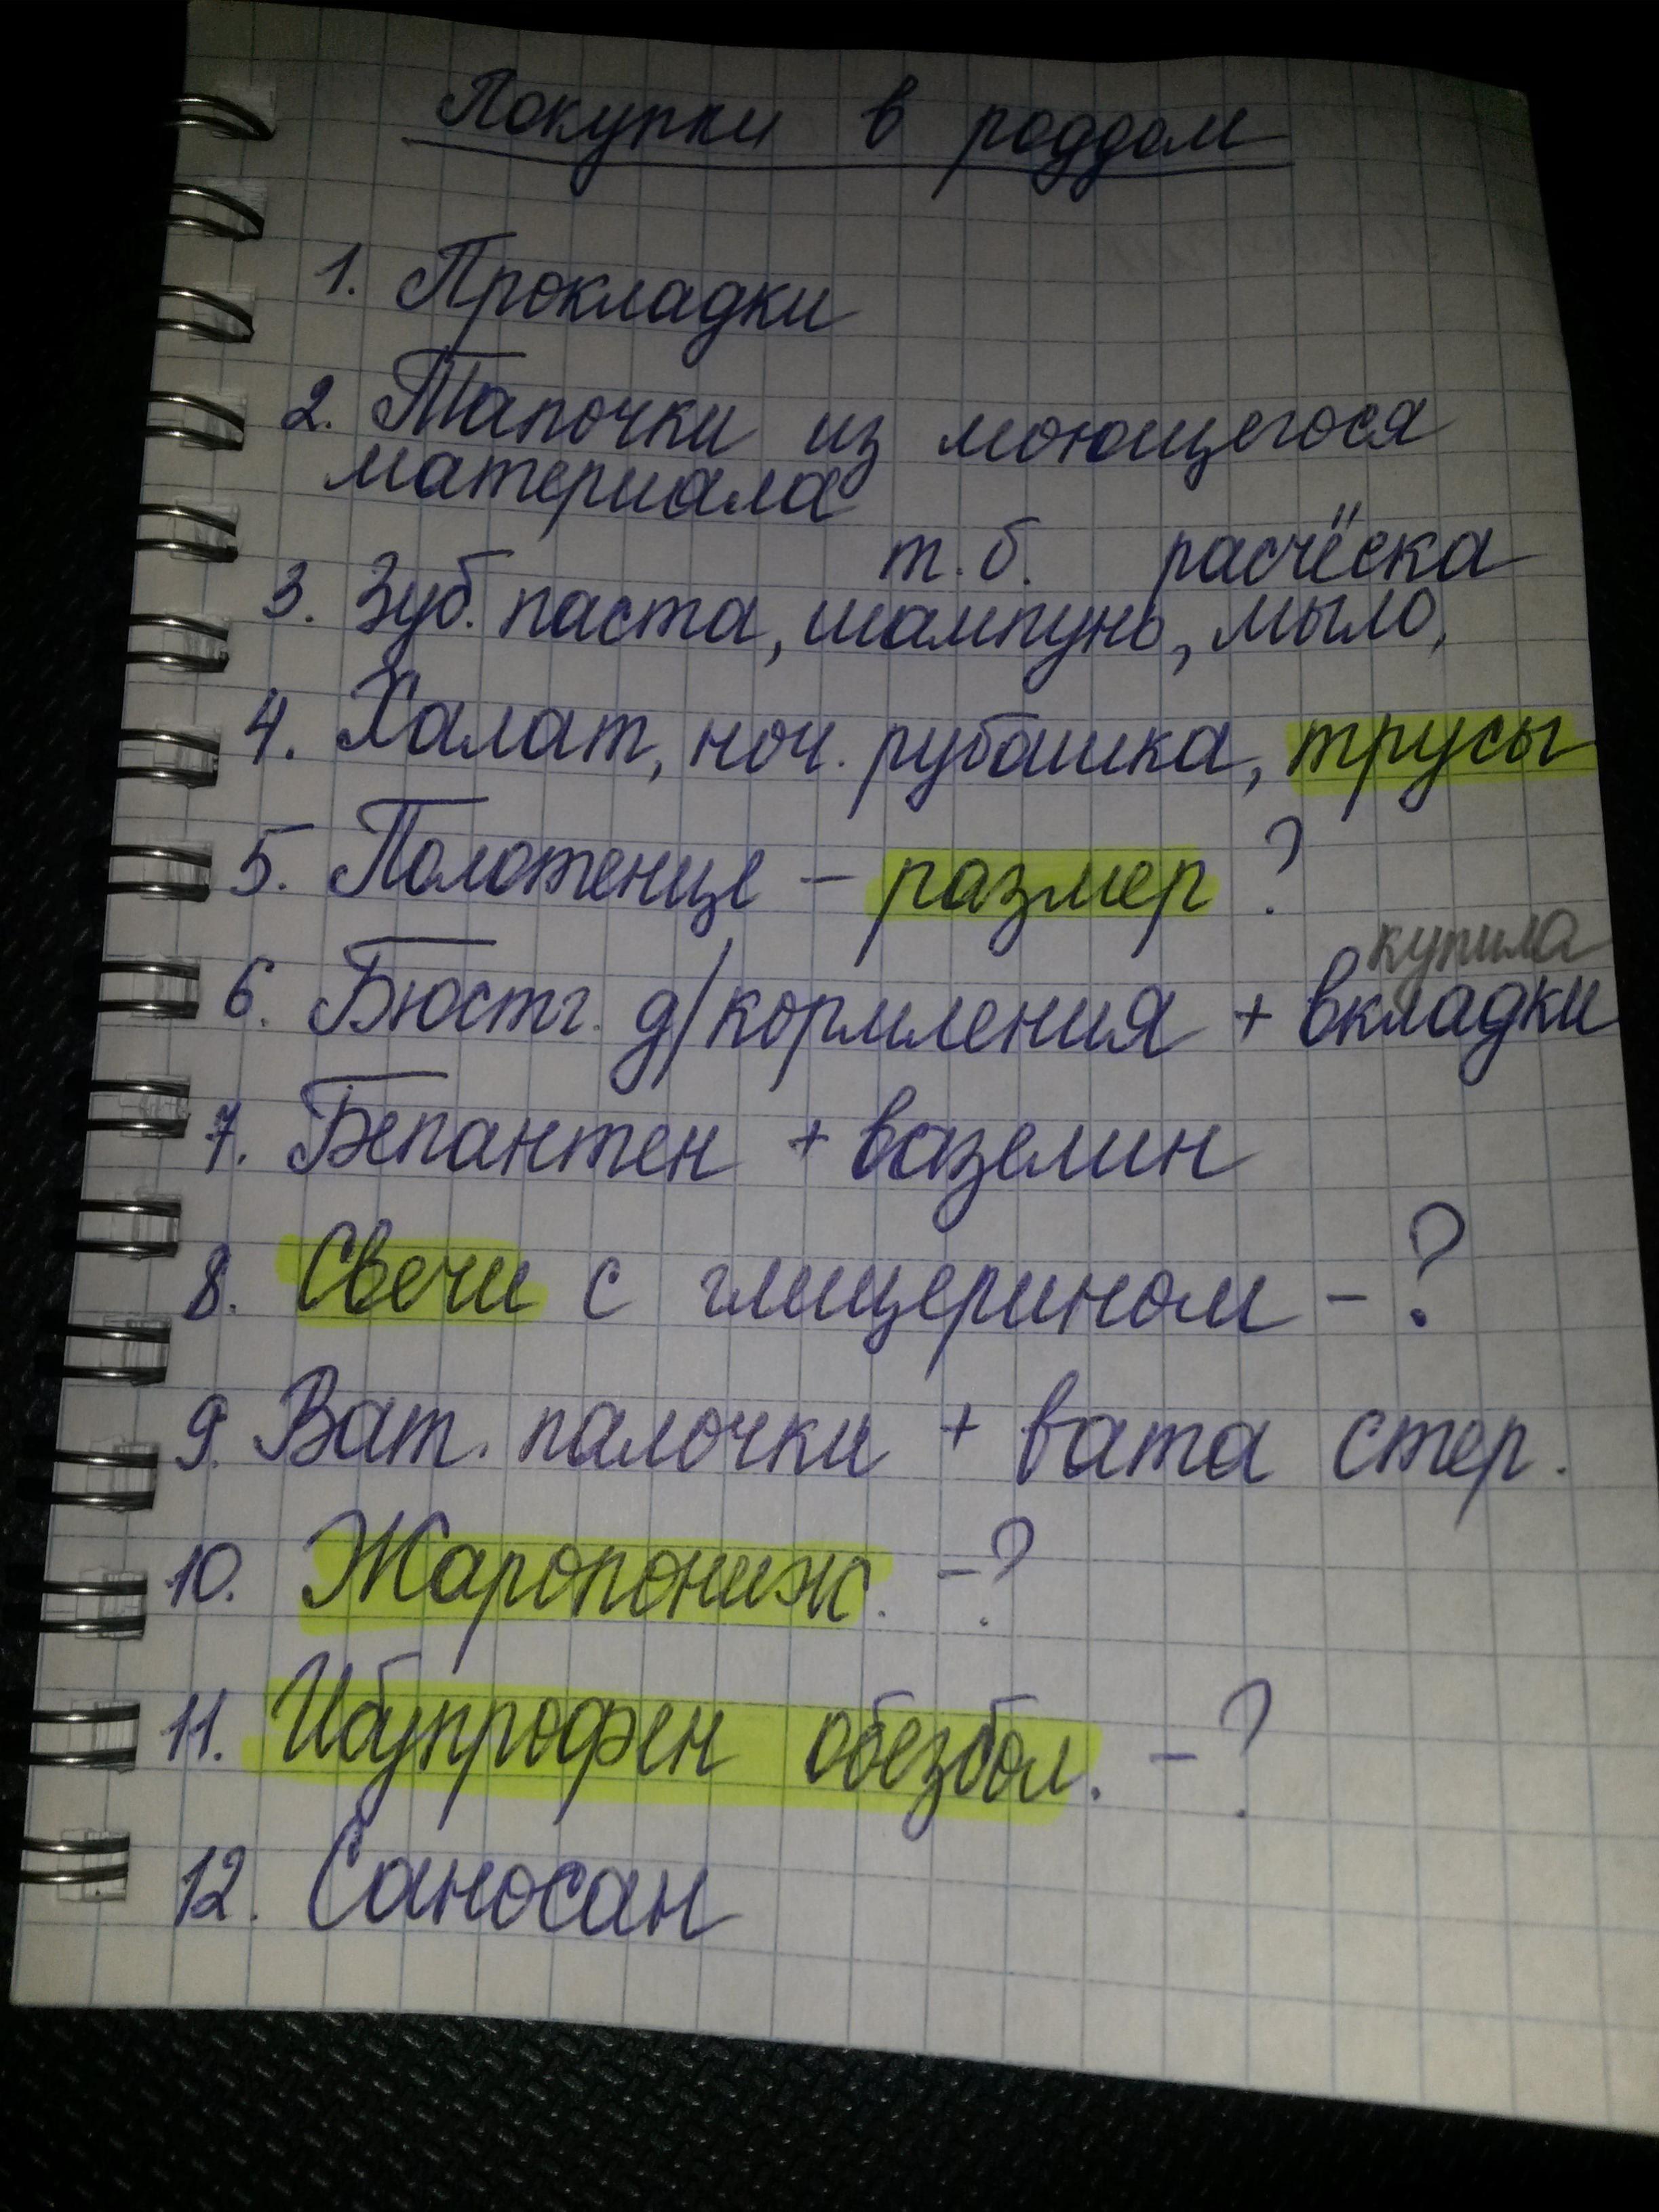 Покупки в роддом
1. Прокладки
2. Тапочки из моющегося
материала
т.б. расчёска
3. Зуб. паста, шампунь, мыло,
4. Халат, ноч. рубашка, трусы
5. Полотенце - размер ?
купила
6. Бюстг. д/кормления + вкладки
7. Бепантен + вазелин
8. Свечи с глицерином - ?
9. Ват. палочки + вата стер.
10. Жаропониж. - ?
11. Ибупрофен обезбол. - ?
12. Саносан